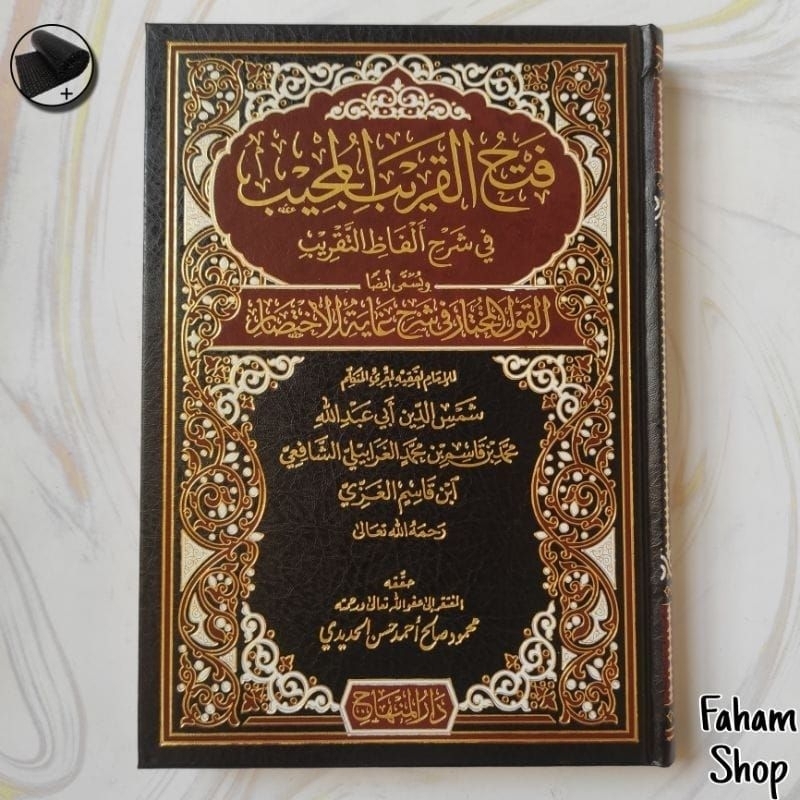 فَتْحُ الْقَرِيبِ الْمُجِيبِ
فِي شَرْحِ أَلْفَاظِ التَّقْرِيبِ
وَيُسَمَّى أَيْضًا
القَوْلَ المُخْتَارَ فِي شَرْحِ غَايَةِ الِاخْتِصَارِ
للإمام الفقيه المقرئ المتكلم
شَمْسِ الدِّينِ أَبِي عَبْدِ اللهِ
مُحَمَّدِ بْنِ قَاسِمِ بْنِ مُحَمَّدٍ الغَرَابِيلِيِّ الشَّافِعِيِّ
ابْنِ قَاسِمٍ الغَزِّيِّ
رَحِمَهُ اللهُ تَعَالَى
حقّقه
المفتقر إلى عفو الله تعالى ورحمته
محمود صالح أحمد حسن الحديدي
دَارُ المِنْهَاجِ
+
Faham
Shop